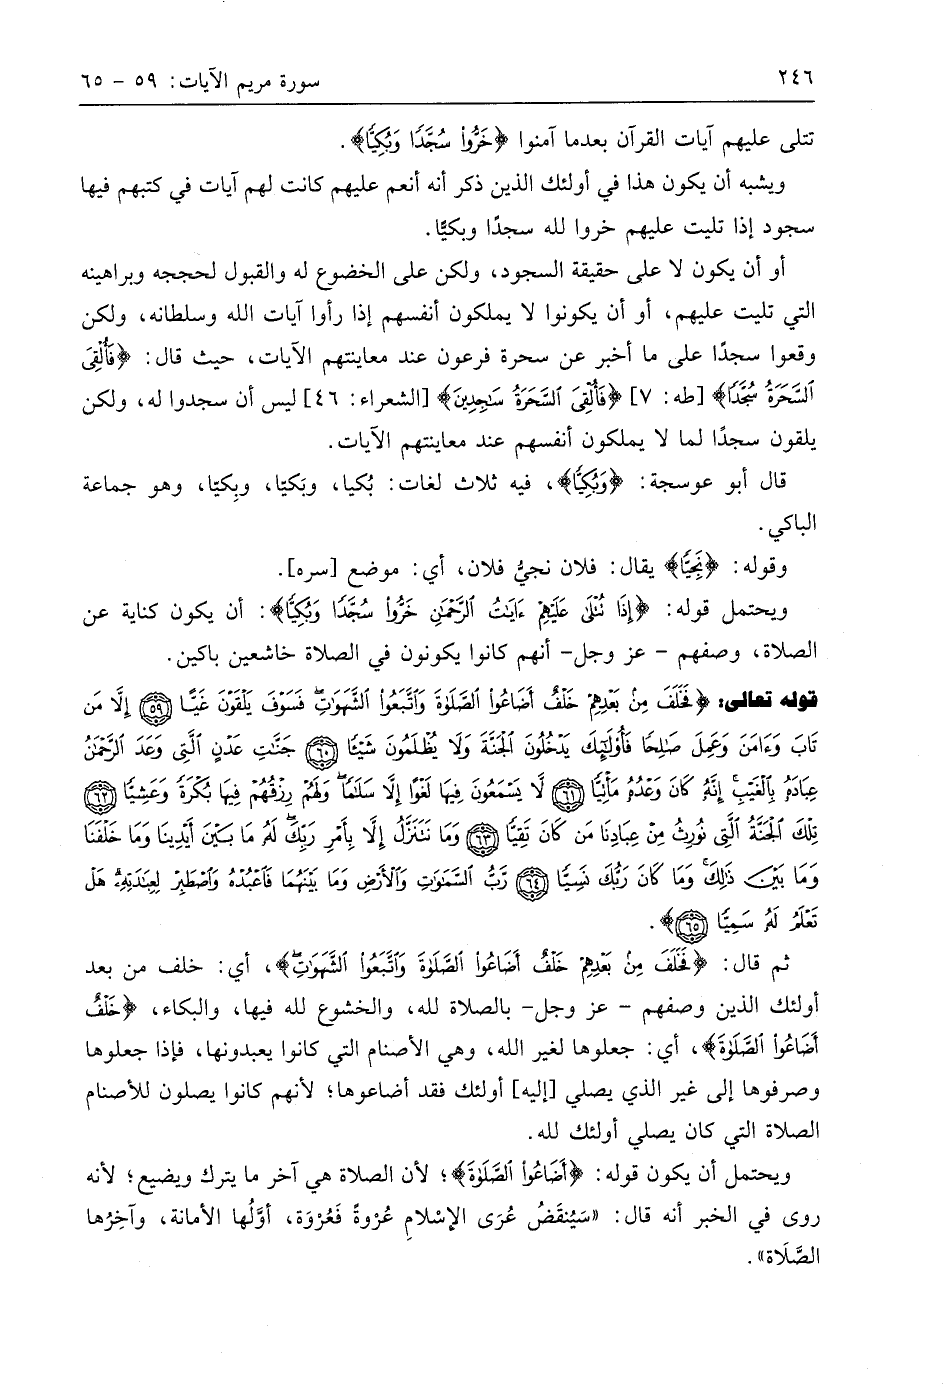 ٢٤٦ سورة مريم الآيات: ٥٩ - ٦٥
تتلى عليهم آيات القرآن بعدما آمنوا ﴿خَرُّواْ سُجَّدًا وَبُكِيًّا﴾.
ويشبه أن يكون هذا في أولئك الذين ذكر أنه أنعم عليهم كانت لهم آيات في كتبهم فيها
سجود إذا تليت عليهم خروا لله سجدًا وبكيًّا.
أو أن يكون لا على حقيقة السجود، ولكن على الخضوع له والقبول لحججه وبراهينه
التي تليت عليهم، أو أن يكونوا لا يملكون أنفسهم إذا رأوا آيات الله وسلطانه، ولكن
وقعوا سجدًا على ما أخبر عن سحرة فرعون عند معاينتهم الآيات، حيث قال: ﴿فَأُلْقِىَ
ٱلسَّحَرَةُ سُجَّدًا﴾ [طه: ٧] ﴿فَأُلْقِىَ ٱلسَّحَرَةُ سَٰجِدِينَ﴾ [الشعراء: ٤٦] ليس أن سجدوا له، ولكن
يلقون سجدًا لما لا يملكون أنفسهم عند معاينتهم الآيات.
قال أبو عوسجة: ﴿وَبُكِيًّا﴾، فيه ثلاث لغات: بُكيا، وبَكيّا، وبِكيّا، وهو جماعة
الباكي.
وقوله: ﴿نَجِيًّا﴾ يقال: فلان نجيُّ فلان، أي: موضع [سره].
ويحتمل قوله: ﴿إِذَا تُتْلَىٰ عَلَيْهِمْ ءَايَٰتُ ٱلرَّحْمَٰنِ خَرُّواْ سُجَّدًا وَبُكِيًّا﴾: أن يكون كناية عن
الصلاة، وصفهم - عز وجل- أنهم كانوا يكونون في الصلاة خاشعين باكين.
قوله تعالى: ﴿فَخَلَفَ مِنۢ بَعْدِهِمْ خَلْفٌ أَضَاعُواْ ٱلصَّلَوٰةَ وَٱتَّبَعُواْ ٱلشَّهَوَٰتِۖ فَسَوْفَ يَلْقَوْنَ غَيًّا ۝٥٩ إِلَّا مَن
تَابَ وَءَامَنَ وَعَمِلَ صَٰلِحًا فَأُوْلَٰٓئِكَ يَدْخُلُونَ ٱلْجَنَّةَ وَلَا يُظْلَمُونَ شَيْـًٔا ۝٦٠ جَنَّٰتِ عَدْنٍ ٱلَّتِى وَعَدَ ٱلرَّحْمَٰنُ
عِبَادَهُۥ بِٱلْغَيْبِۚ إِنَّهُۥ كَانَ وَعْدُهُۥ مَأْتِيًّا ۝٦١ لَّا يَسْمَعُونَ فِيهَا لَغْوًا إِلَّا سَلَٰمًاۖ وَلَهُمْ رِزْقُهُمْ فِيهَا بُكْرَةً وَعَشِيًّا ۝٦٢
تِلْكَ ٱلْجَنَّةُ ٱلَّتِى نُورِثُ مِنْ عِبَادِنَا مَن كَانَ تَقِيًّا ۝٦٣ وَمَا نَتَنَزَّلُ إِلَّا بِأَمْرِ رَبِّكَۖ لَهُۥ مَا بَيْنَ أَيْدِينَا وَمَا خَلْفَنَا
وَمَا بَيْنَ ذَٰلِكَۚ وَمَا كَانَ رَبُّكَ نَسِيًّا ۝٦٤ رَّبُّ ٱلسَّمَٰوَٰتِ وَٱلْأَرْضِ وَمَا بَيْنَهُمَا فَٱعْبُدْهُ وَٱصْطَبِرْ لِعِبَٰدَتِهِۦۚ هَلْ
تَعْلَمُ لَهُۥ سَمِيًّا ۝٦٥﴾.
ثم قال: ﴿فَخَلَفَ مِنۢ بَعْدِهِمْ خَلْفٌ أَضَاعُواْ ٱلصَّلَوٰةَ وَٱتَّبَعُواْ ٱلشَّهَوَٰتِۖ﴾، أي: خلف من بعد
أولئك الذين وصفهم - عز وجل- بالصلاة لله، والخشوع لله فيها، والبكاء، ﴿خَلْفٌ
أَضَاعُواْ ٱلصَّلَوٰةَ﴾، أي: جعلوها لغير الله، وهي الأصنام التي كانوا يعبدونها، فإذا جعلوها
وصرفوها إلى غير الذي يصلي [إليه] أولئك فقد أضاعوها؛ لأنهم كانوا يصلون للأصنام
الصلاة التي كان يصلي أولئك لله.
ويحتمل أن يكون قوله: ﴿أَضَاعُواْ ٱلصَّلَوٰةَ﴾؛ لأن الصلاة هي آخر ما يترك ويضيع؛ لأنه
روى في الخبر أنه قال: «سَيُنقَضُ عُرَى الإِسْلامِ عُرْوةً فَعُرْوَة، أوَّلُها الأمانة، وآخِرُها
الصَّلَاة».